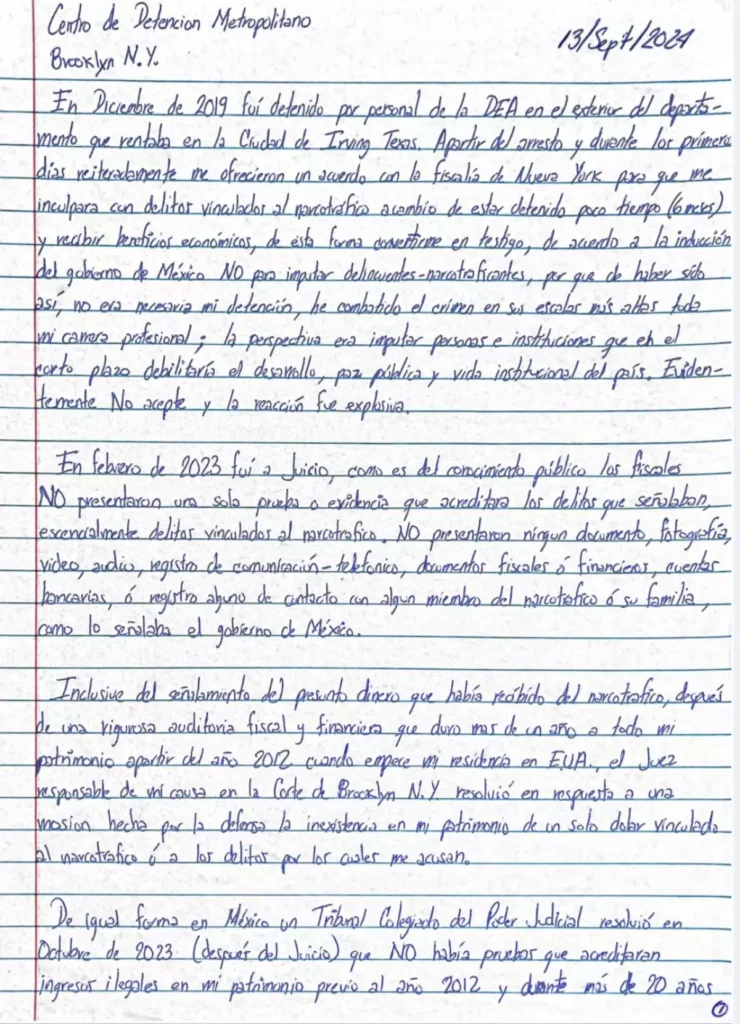 Centro de Detencion Metropolitano
Brooklyn N.Y.
13/Sept/2024
En Diciembre de 2019 fuí detenido por personal de la DEA en el exterior del departa-
mento que rentaba en la Ciudad de Irving Texas. Apartir del arresto y durante los primeros
días reiteradamente me ofrecieron un acuerdo con la fiscalía de Nueva York para que me
inculpara con delitos vinculados al narcotráfico acambio de estar detenido poco tiempo (6 meses)
y recibir beneficios económicos, de ésta forma convertirme en testigo, de acuerdo a la inducción
del gobierno de México NO para imputar delincuentes-narcotraficantes, por que de haber sido
así, no era necesaria mi detención, he combatido el crimen en sus escalas más altas toda
mi carrera profesional; la perspectiva era imputar personas e instituciones que en el
corto plazo debilitaría el desarrollo, paz pública y vida institucional del país. Eviden-
temente No acepte y la reacción fue explosiva.
En febrero de 2023 fui a Juicio, como es del conocimiento público los fiscales
NO presentaron una sola prueba o evidencia que acreditara los delitos que señalaban,
escencialmente delitos vinculados al narcotrafico. NO presentaron ningun documento, fotografía,
video, audio, registro de comunicación-telefonico, documentos fiscales ó financieros, cuentas
bancarias, ó registro alguno de contacto con algun miembro del narcotrafico ó su familia,
como lo señalaba el gobierno de México.
Inclusive del señalamiento del presunto dinero que había recibido del narcotrafico, después
de una rigurosa auditoria fiscal y financiera que duro mas de un año a todo mi
patrimonio apartir del año 2012 cuando empece mi residencia en EUA., el Juez
responsable de mi causa en la Corte de Brooklyn N.Y. resolvió en respuesta a una
mosion hecha por la defensa la inexistencia en mi patrimonio de un solo dolar vinculado
al narcotrafico ó a los delitos por los cuales me acusan.
De igual forma en México un Tribunal Colegiado del Poder Judicial resolvió en
Octubre de 2023 (después del Juicio) que NO había pruebas que acreditaran
ingresos ilegales en mi patrimonio previo al año 2012 y durante más de 20 años
1